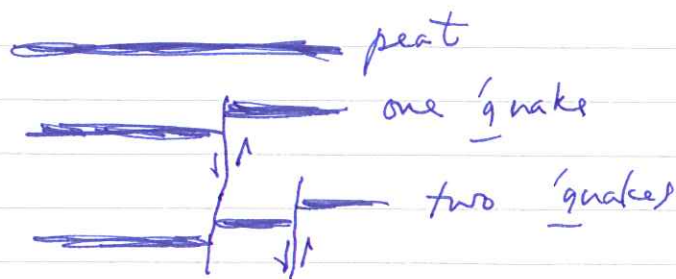 peat
one 'quake
two 'quakes